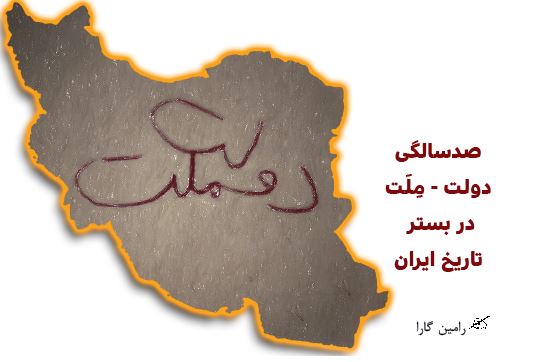 دولت
ملت
صدسالگی
دولت - مِلَت
در بستر
تاریخ ایران
رامین گارا